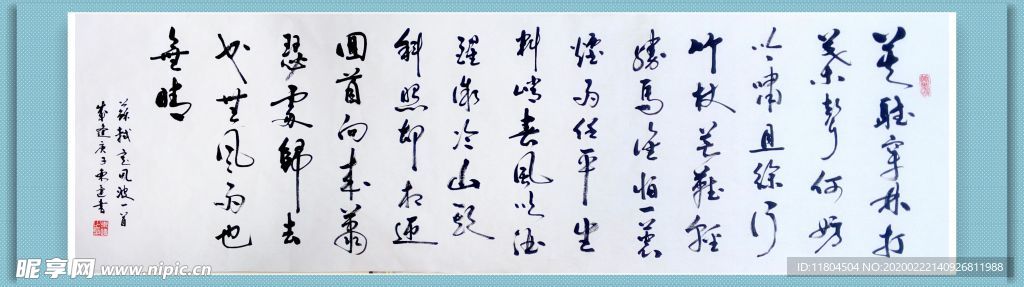 莫聽穿林打
葉聲何妨
吟嘯且徐行
竹杖芒鞋輕
勝馬誰怕一蓑
煙雨任平生
料峭春風吹酒
醒微冷山頭
斜照却相迎
回首向來蕭
瑟處歸去
也無風雨也
無晴
蘇軾定風波一首
庚子東建書
昵享网 www.nipic.cn
ID:11804504 NO:20200222140926811988